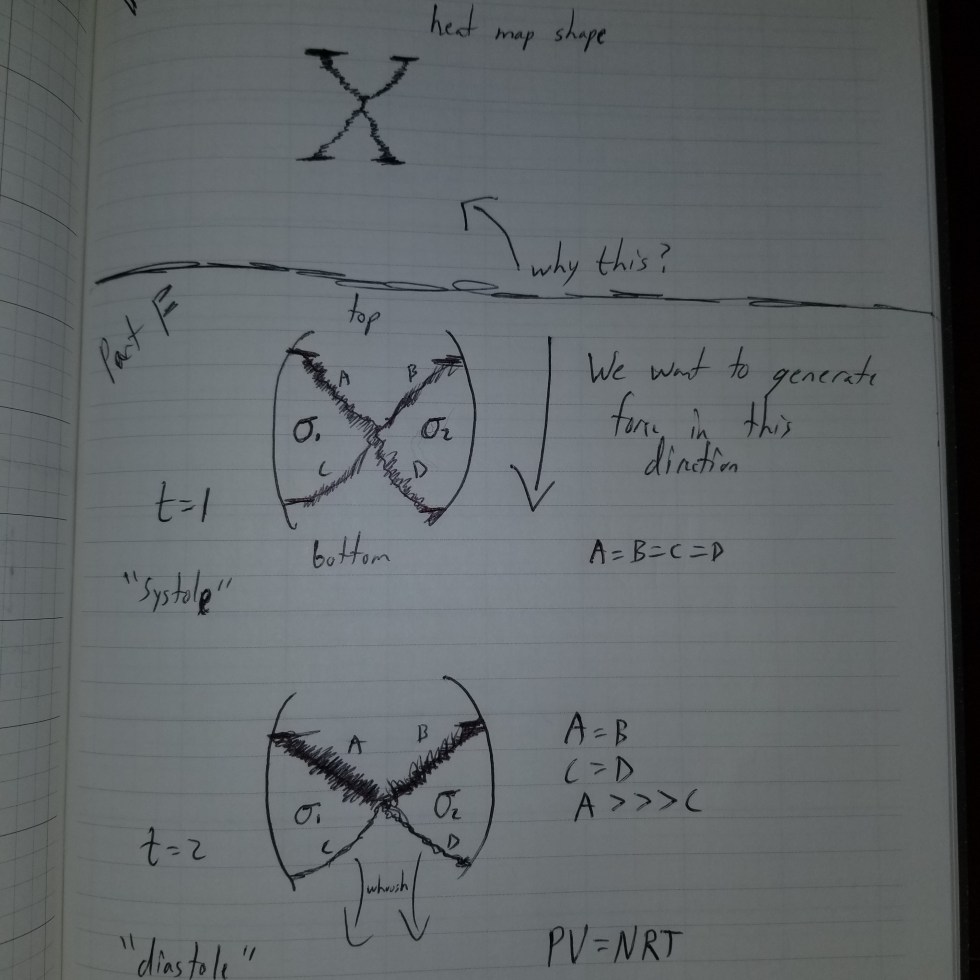 heat map shape
why this?
Part F
top
A B
σ₁ σ₂
C D
We want to generate
force in this
direction
t=1
bottom
A=B=C=D
"Systole"
A B
σ₁ σ₂
C D
A=B
C=D
A>>>C
t=2
whoosh
"diastole"
PV=NRT